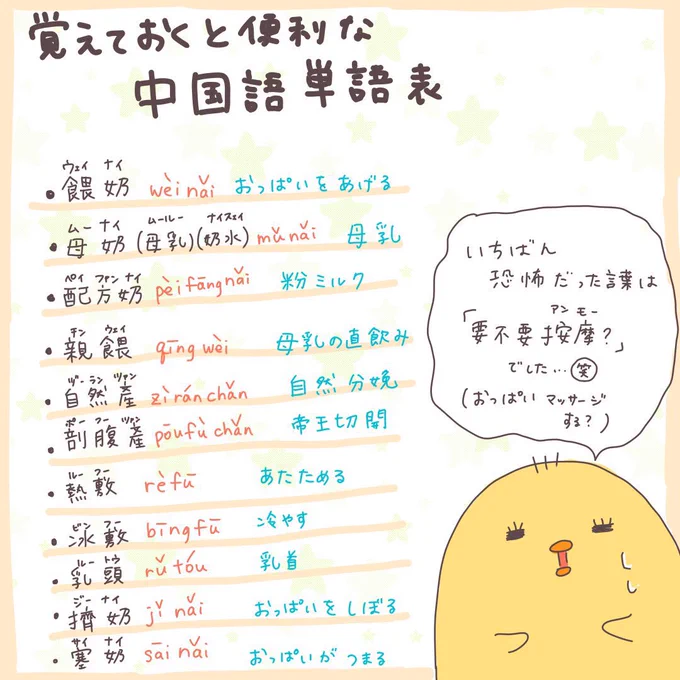 覚えておくと便利な
中国語単語表
ウェイ ナイ
・餵奶 wèi nǎi おっぱいをあげる
ムー ナイ ムールー ナイスェイ
・母奶(母乳)(奶水) mǔ nǎi 母乳
ペイ ファン ナイ
・配方奶 pèi fāng nǎi 粉ミルク
チン ウェイ
・親餵 qīng wèi 母乳の直飲み
ヅー ラン ツァン
・自然產 zì rán chǎn 自然分娩
ポー フー ツァン
・剖腹產 pōu fù chǎn 帝王切開
ルー フー
・熱敷 rè fū あたためる
ビン フー
・冰敷 bīng fū 冷やす
ルー トウ
・乳頭 rǔ tóu 乳首
ジー ナイ
・擠奶 jǐ nǎi おっぱいをしぼる
サイ ナイ
・塞奶 sāi nǎi おっぱいがつまる
いちばん
恐怖だった言葉は
アン モー
「要不要按摩?」
でした…笑
(おっぱいマッサージ
する?)